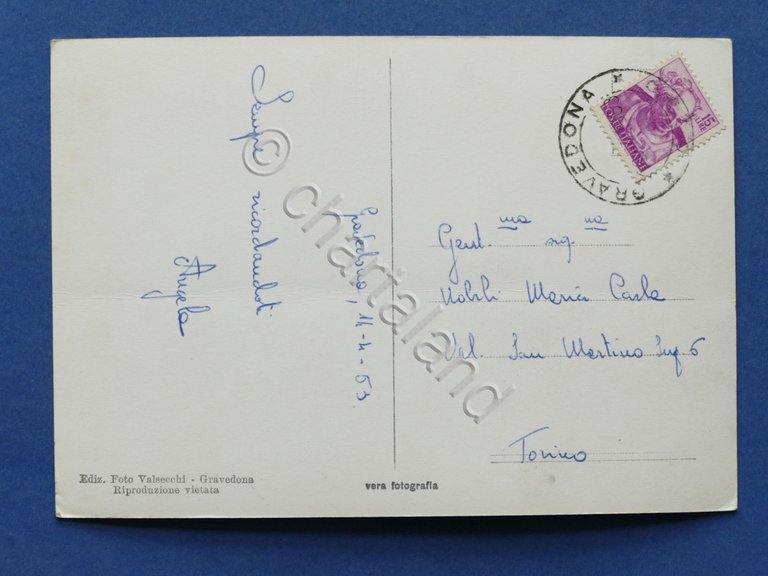 Sempre ricordandoti
Angela
Gravedona, 14-4-63.
Gent.ma sig.na
Nobili Maria Carla
Val. San Martino Sup 6
Torino
GRAVEDONA
15 LIRE
Ediz. Foto Valsecchi - Gravedona
Riproduzione vietata
vera fotografia
© chartaland